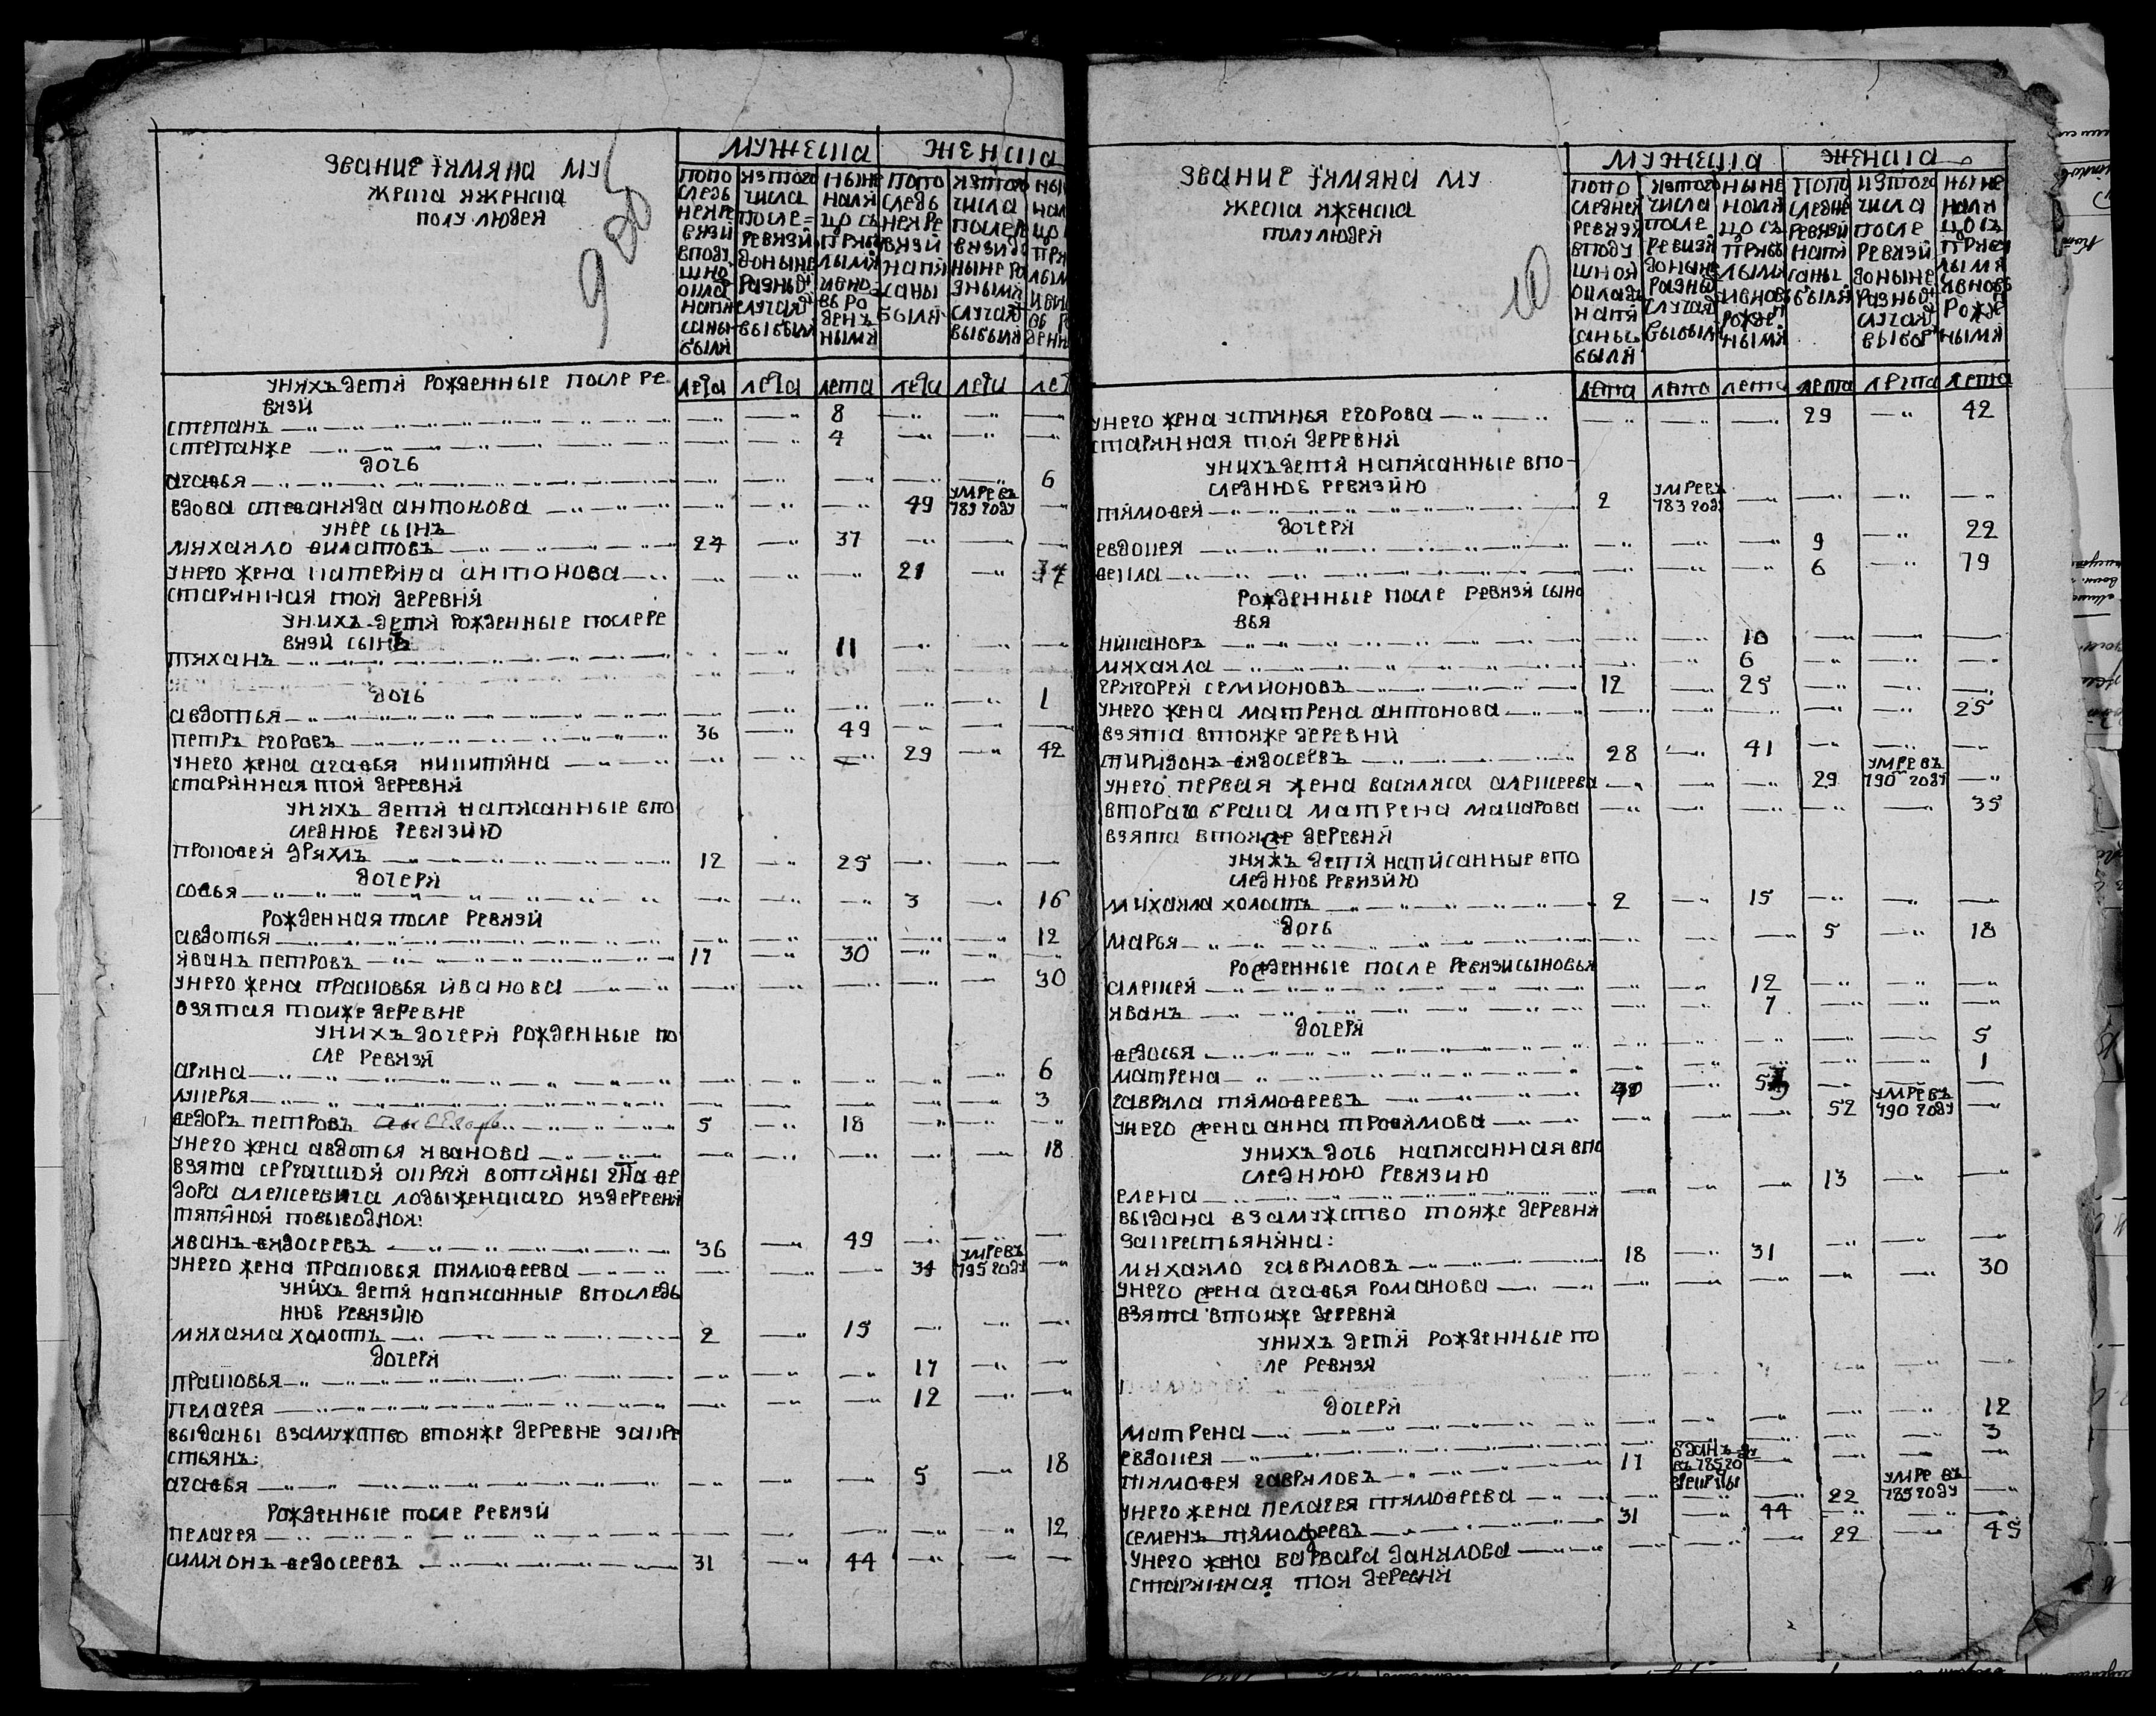 звание и имяна му
жеска и женска
полу людей
9 об
мужеска
женска
попо следь ней ре визи в поду шно окла напи саны были
из того числа после ревизи до ныне разны случая выбыли
ныне нали цо съ прибы лыми и вно вь ро денъ ными
попо следь ней ре визи напи саны были
из того числа после ре визи до ныне ра зными случая выбыли
лета лета лета лета лета лет
у нихъ дети рожденные после ре
визи
степанъ 8
степанже 4
дочь
агафья 6
вдова стефанида антонова 49 умре въ 789 году
у нее сынъ
михайло филатовъ 24 37
у него жена катерина антонова 21 34
старинная той деревни
у нихъ дети рожденные после ре
визи сынъ
тиханъ 11
дочь
авдотья 1
петръ егоровъ 36 49
у него жена агафья никитина 29 42
старинная той деревни
у нихъ дети написанные в по
следнюю ревизию
прокофей дряхлъ 12 25
дочери
софья 3 16
рожденная после ревизи
авдотья 12
иванъ петровъ 17 30
у него жена прасковья иванова 30
взятая тоиже деревне
у нихъ дочери рожденные по
сле ревизи
арина 6
лукерья 3
федоръ петровъ 5 18
у него жена авдотья иванова 18
взята сергачской окрги вотчины гна фе
дора алексеевича лодыженскаго из деревни
тяпиной по выводной:
иванъ фядосеевъ 36 49
у него жена прасковья тимофеева 34 умре въ 795 году
у нихъ дети написанные в последь
нюю ревизию
михайла холостъ 2 15
дочери
прасковья 17
пелагея 12
выданы взамужство втойже деревне за кре
стьянъ:
агафья 5 18
рожденные после ревизи
пелагея 12
симионъ федосеевъ 31 44
звание и имяна му
жеска и женска
полу людей
10
мужеска
женска
попо следней ревизи в поду шной окладъ напи саны были
из того числа после ревизи до ныне разны случая выбыли
ныне нали цо съ прибы лыми и вновь рожде ными
попо следне ревизи напи саны были
из того числа после ревизи до ныне разны случая выбы
ныне нали цо съ прибы лыми и вновь рожде ными
лета лета лета лета лета лета
у него жена устинья егорова 29 42
старинная той деревни
у нихъ дети написанные в по
следнюю ревизию
тимофей 2 умре въ 783 году
дочери
евдокея 9 22
фекла 6 79
рожденные после ревизи сыно
вья
никаноръ 10
михайла 6
григорей семионовъ 12 25
у него жена матрена антонова 25
взята втойже деревни
спиридонъ фядосеевъ 28 41
у него первая жена василиса алексеева 29 умре въ 790 году
втораго брака матрена макарова 35
взята втойже деревни
у нихъ дети написанные в по
следнюю ревизию
михайла холостъ 2 15
дочь
марья 5 18
рожденные после ревизи сыновья
алексей 12
иванъ 7
дочери
федосья 5
матрена 1
гаврила тимофеевъ
у него жена анна трофимова 52 умре въ 790 году
у нихъ дочь написанная в по
следнюю ревизию
елена 13
выдана взамужство тойже деревни
за крестьянина:
михайло гавриловъ 18 31
у него жена агафья романова 30
взята втоиже деревни
у нихъ дети рожденные по
ле ревизи
дочери
матрена 12
евдокея 3
тимофей гавриловъ 17 отданъ въ 785 го в рекруты
у него жена пелагея тимофеева 22 умре въ 785 году
семенъ тимофеевъ 31 44
у него жена варвара данилова 22 45
старинная той деревни